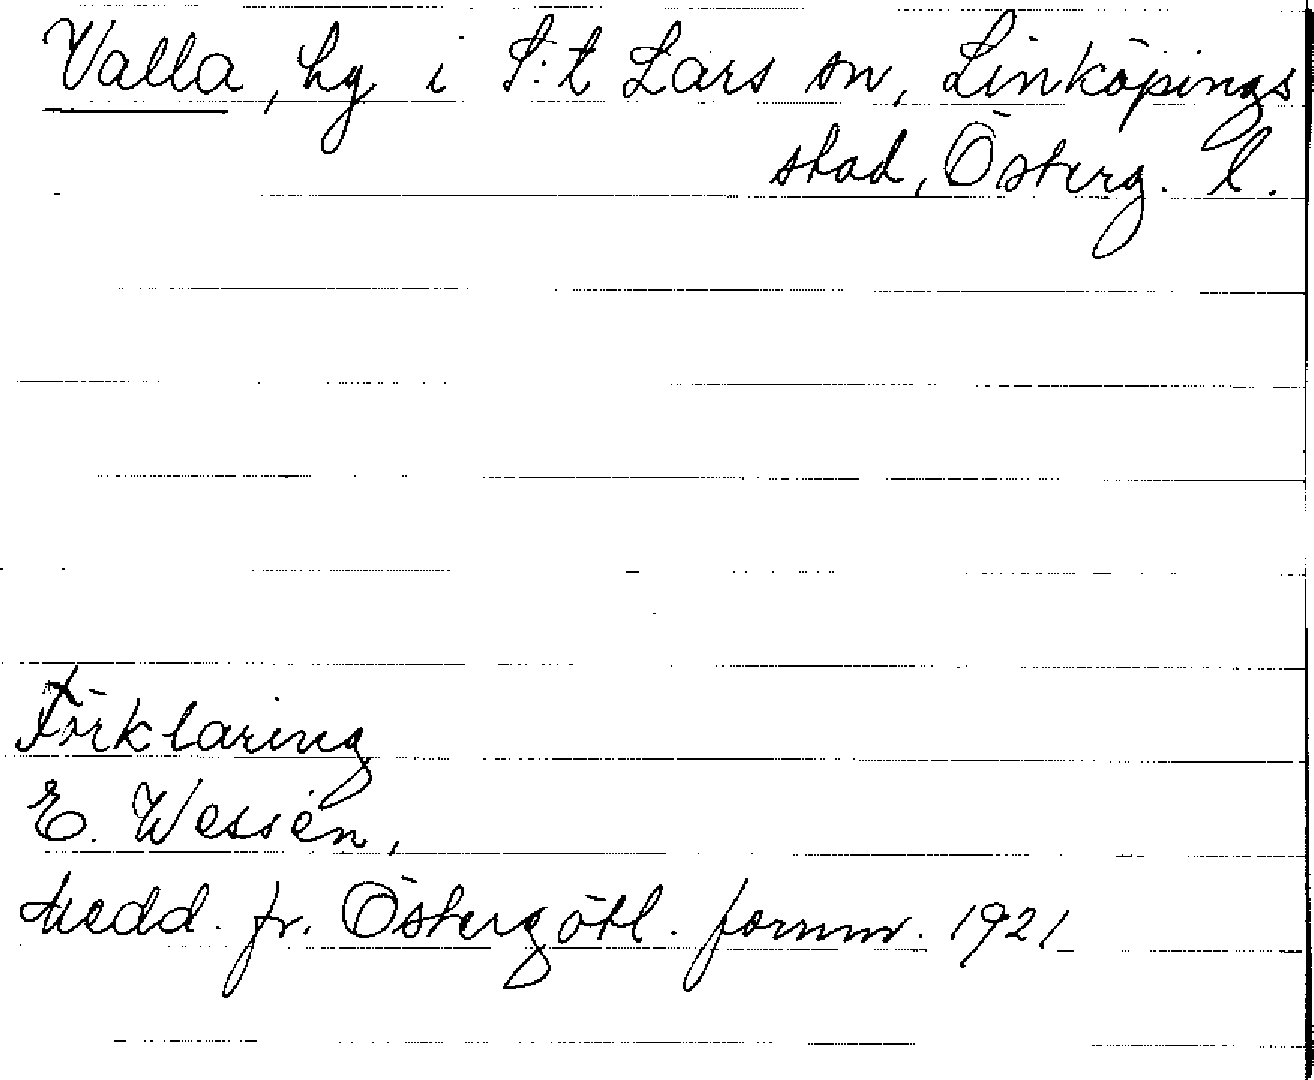 Valla, hg i S:t Lars sn, Linköpings
stad, Österg. l.
Förklaring
E. Wessén,
Medd. fr. Östergötl. fornm. 1921